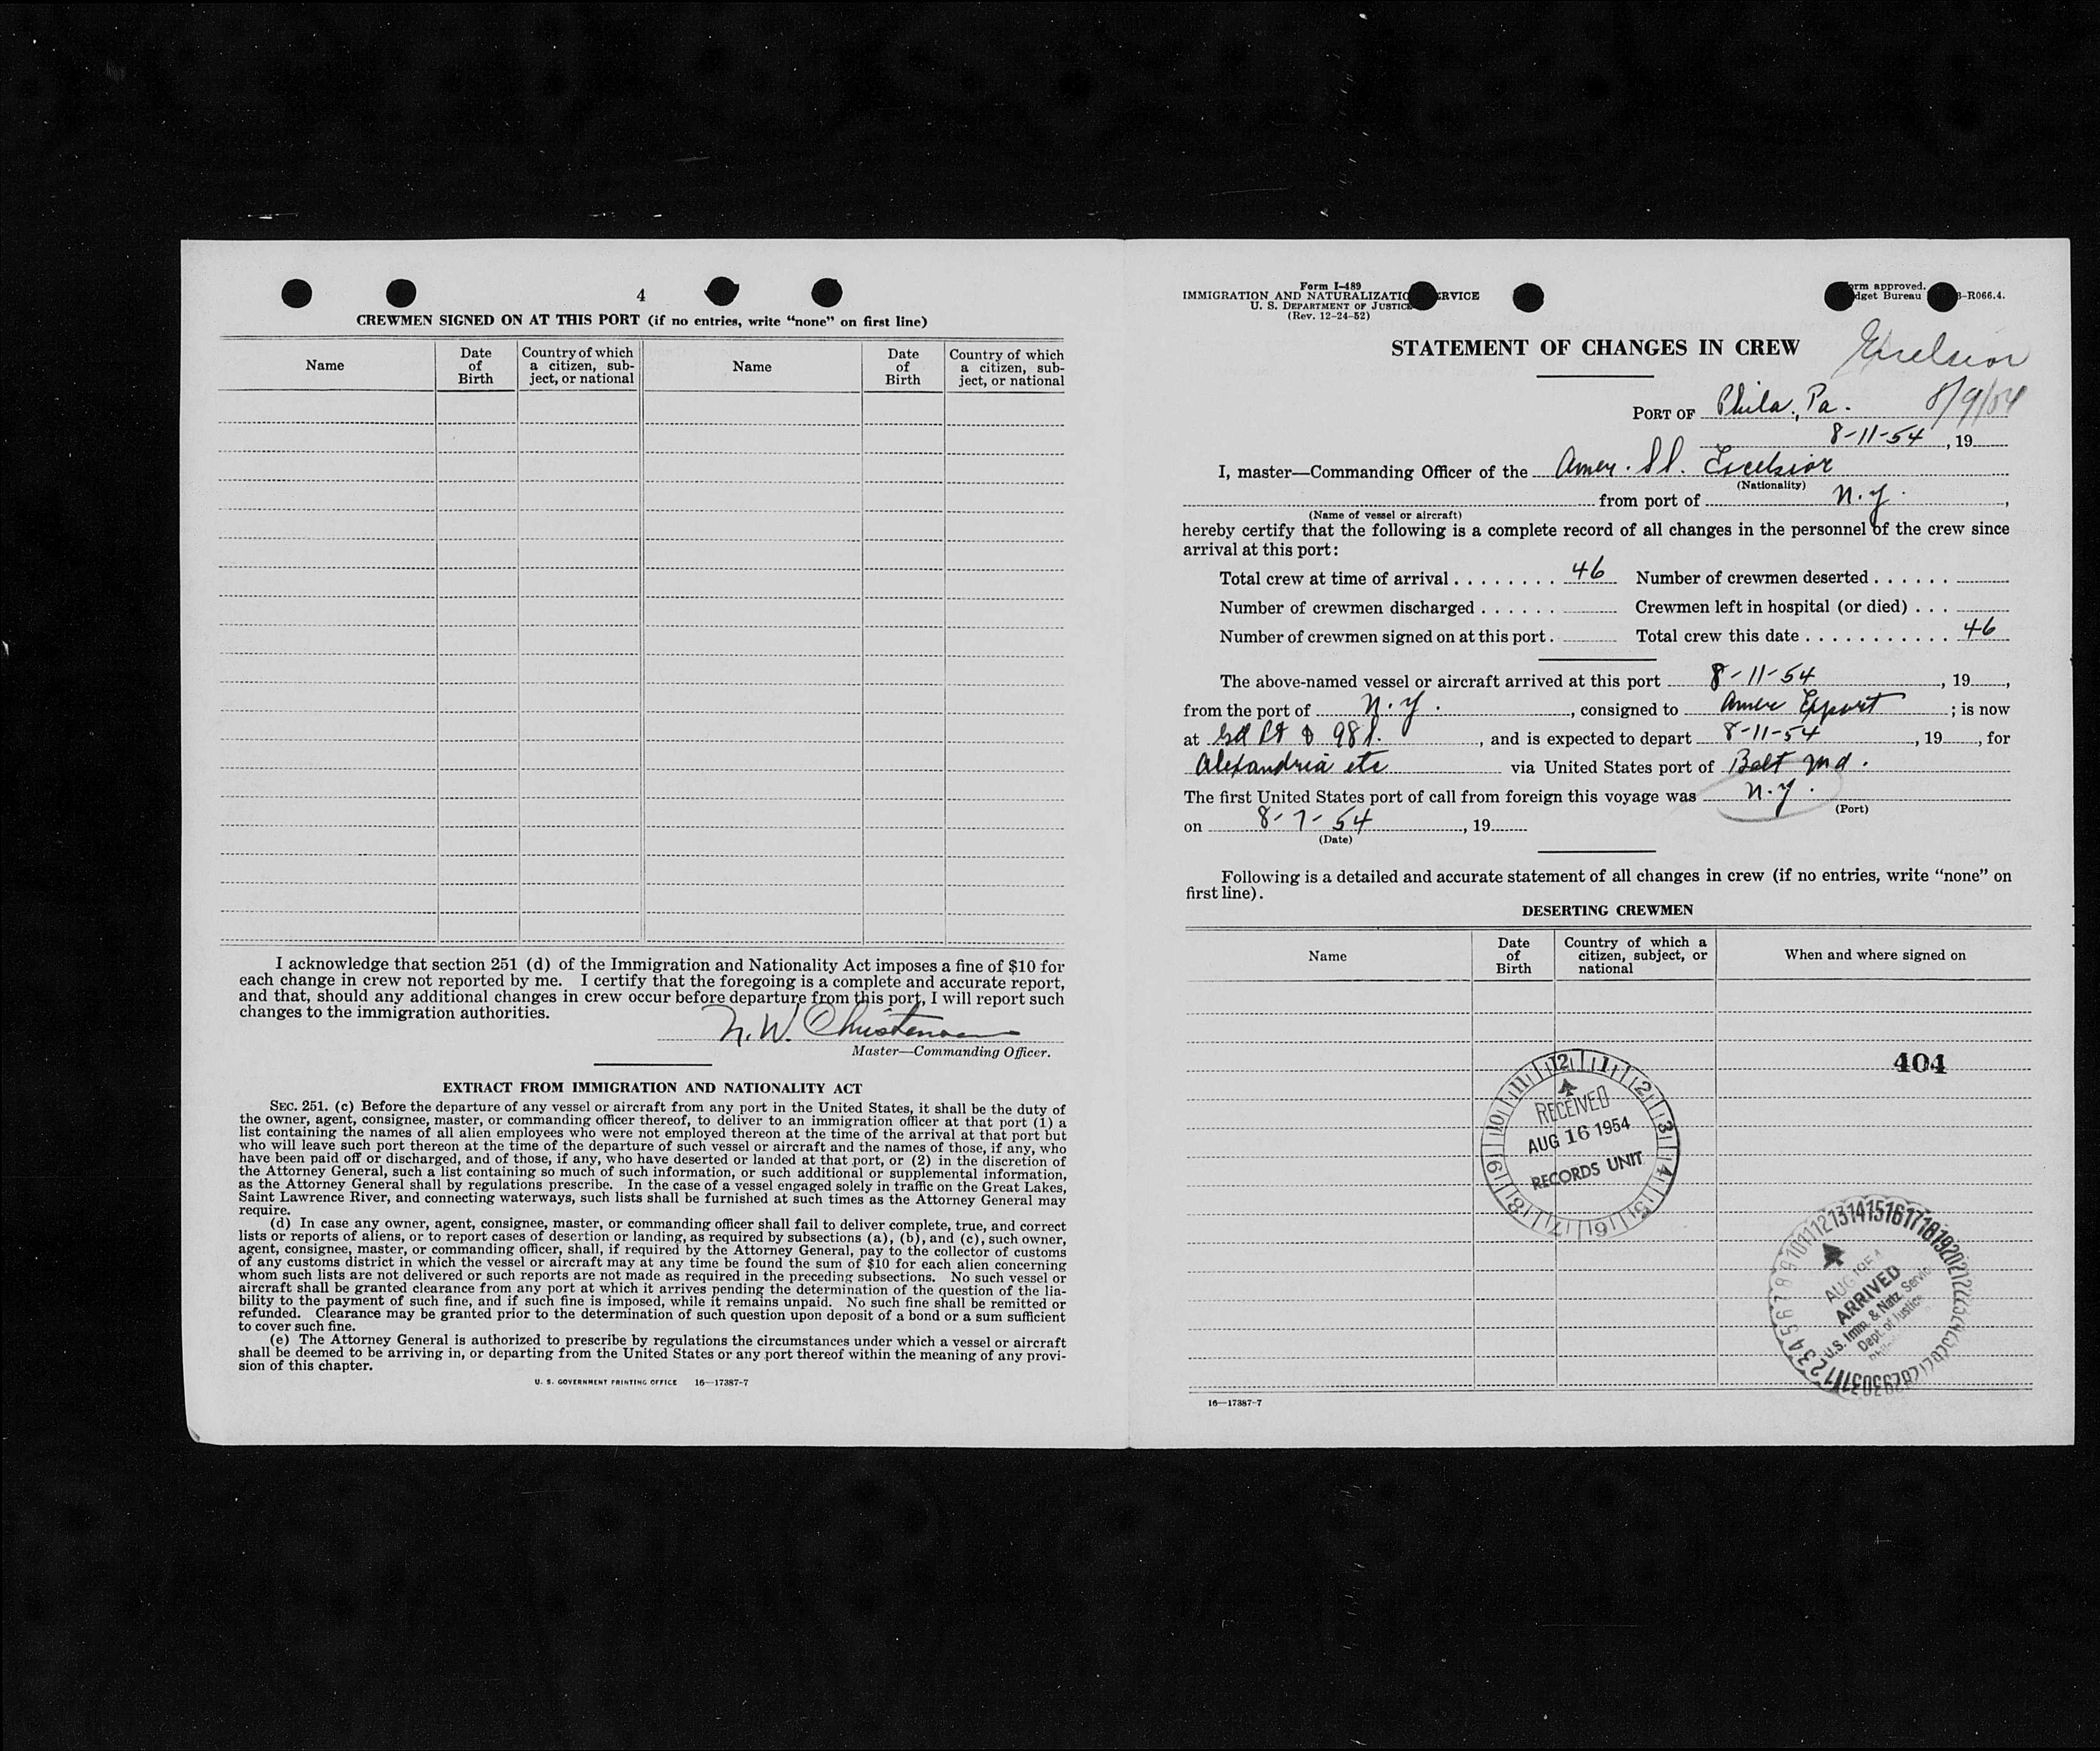 4
CREWMEN SIGNED ON AT THIS PORT (if no entries, write "none" on first line)
Name
Date of Birth
Country of which a citizen, sub-ject, or national
Name
Date of Birth
Country of which a citizen, sub-ject, or national
I acknowledge that section 251 (d) of the Immigration and Nationality Act imposes a fine of $10 for
each change in crew not reported by me. I certify that the foregoing is a complete and accurate report,
and that, should any additional changes in crew occur before departure from this port, I will report such
changes to the immigration authorities.
N. W. Christensen
Master—Commanding Officer.
EXTRACT FROM IMMIGRATION AND NATIONALITY ACT
SEC. 251. (c) Before the departure of any vessel or aircraft from any port in the United States, it shall be the duty of
the owner, agent, consignee, master, or commanding officer thereof, to deliver to an immigration officer at that port (1) a
list containing the names of all alien employees who were not employed thereon at the time of the arrival at that port but
who will leave such port thereon at the time of the departure of such vessel or aircraft and the names of those, if any, who
have been paid off or discharged, and of those, if any, who have deserted or landed at that port, or (2) in the discretion of
the Attorney General, such a list containing so much of such information, or such additional or supplemental information,
as the Attorney General shall by regulations prescribe. In the case of a vessel engaged solely in traffic on the Great Lakes,
Saint Lawrence River, and connecting waterways, such lists shall be furnished at such times as the Attorney General may
require.
(d) In case any owner, agent, consignee, master, or commanding officer shall fail to deliver complete, true, and correct
lists or reports of aliens, or to report cases of desertion or landing, as required by subsections (a), (b), and (c), such owner,
agent, consignee, master, or commanding officer, shall, if required by the Attorney General, pay to the collector of customs
of any customs district in which the vessel or aircraft may at any time be found the sum of $10 for each alien concerning
whom such lists are not delivered or such reports are not made as required in the preceding subsections. No such vessel or
aircraft shall be granted clearance from any port at which it arrives pending the determination of the question of the lia-
bility to the payment of such fine, and if such fine is imposed, while it remains unpaid. No such fine shall be remitted or
refunded. Clearance may be granted prior to the determination of such question upon deposit of a bond or a sum sufficient
to cover such fine.
(e) The Attorney General is authorized to prescribe by regulations the circumstances under which a vessel or aircraft
shall be deemed to be arriving in, or departing from the United States or any port thereof within the meaning of any provi-
sion of this chapter.
U. S. GOVERNMENT PRINTING OFFICE 16—17387-7
Form I-489
IMMIGRATION AND NATURALIZATIO RVICE
U. S. DEPARTMENT OF JUSTICE
(Rev. 12-24-52)
rm approved.
dget Bureau -R066.4.
STATEMENT OF CHANGES IN CREW
Excelsior
PORT OF Phila., Pa.
8-11-54, 19
I, master—Commanding Officer of the Amer. SS. Excelsior
(Nationality)
from port of N.Y.,
(Name of vessel or aircraft)
hereby certify that the following is a complete record of all changes in the personnel of the crew since
arrival at this port:
Total crew at time of arrival . . . . . . . . 46 Number of crewmen deserted . . . . . .
Number of crewmen discharged . . . . . . Crewmen left in hospital (or died) . . .
Number of crewmen signed on at this port . Total crew this date . . . . . . . . . . . . 46
The above-named vessel or aircraft arrived at this port 8-11-54, 19,
from the port of N.Y., consigned to Amer Export; is now
at 98 S., and is expected to depart 8-11-54, 19, for
Alexandria etc via United States port of Balt Md.
The first United States port of call from foreign this voyage was N.Y.
(Port)
on 8-7-54, 19
(Date)
Following is a detailed and accurate statement of all changes in crew (if no entries, write "none" on
first line).
DESERTING CREWMEN
Name
Date of Birth
Country of which a citizen, subject, or national
When and where signed on
404
12 1 2 3 4 5 6 7 8 9 10 11
RECEIVED
AUG 16 1954
RECORDS UNIT
AUG 1954
ARRIVED
U.S. Imm. & Natz. Service
Dept. of Justice
16—17387-7